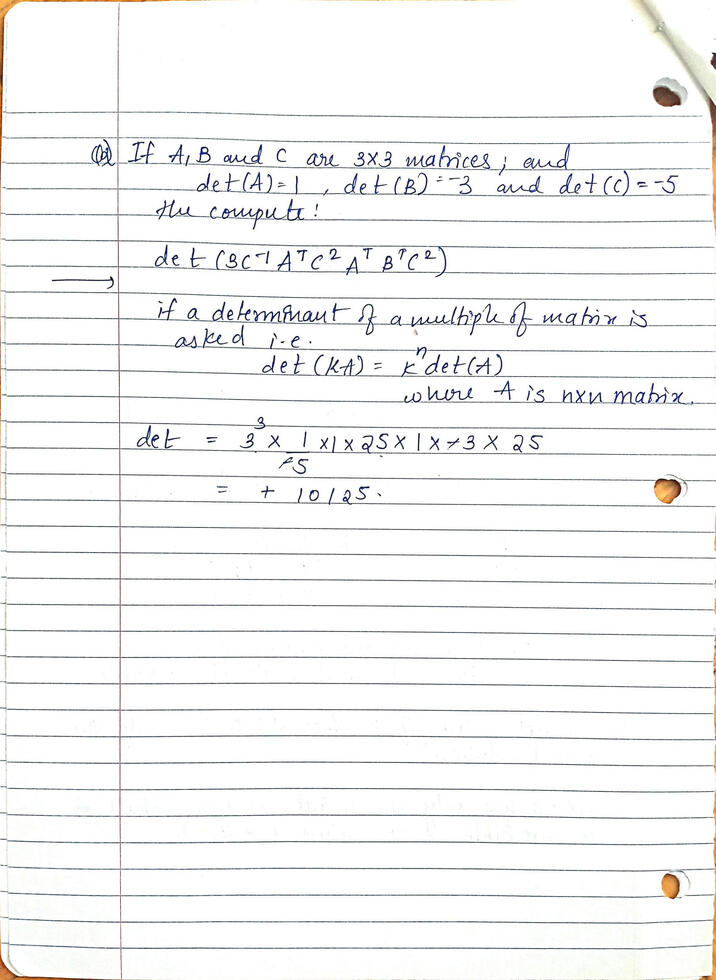 Q2) If A, B and C are 3x3 matrices; and
det(A)=1 , det(B)=-3 and det(C)=-5
the compute!
det (3C⁻¹ Aᵀ C² Aᵀ Bᵀ C²)
→
if a determinant of a multiple of matrix is
asked i.e.
det (KA) = Kⁿ det(A)
where A is nxn matrix.
det = 3³ x 1/-5 x 1 x 25 x 1 x -3 x 25
= + 10125.